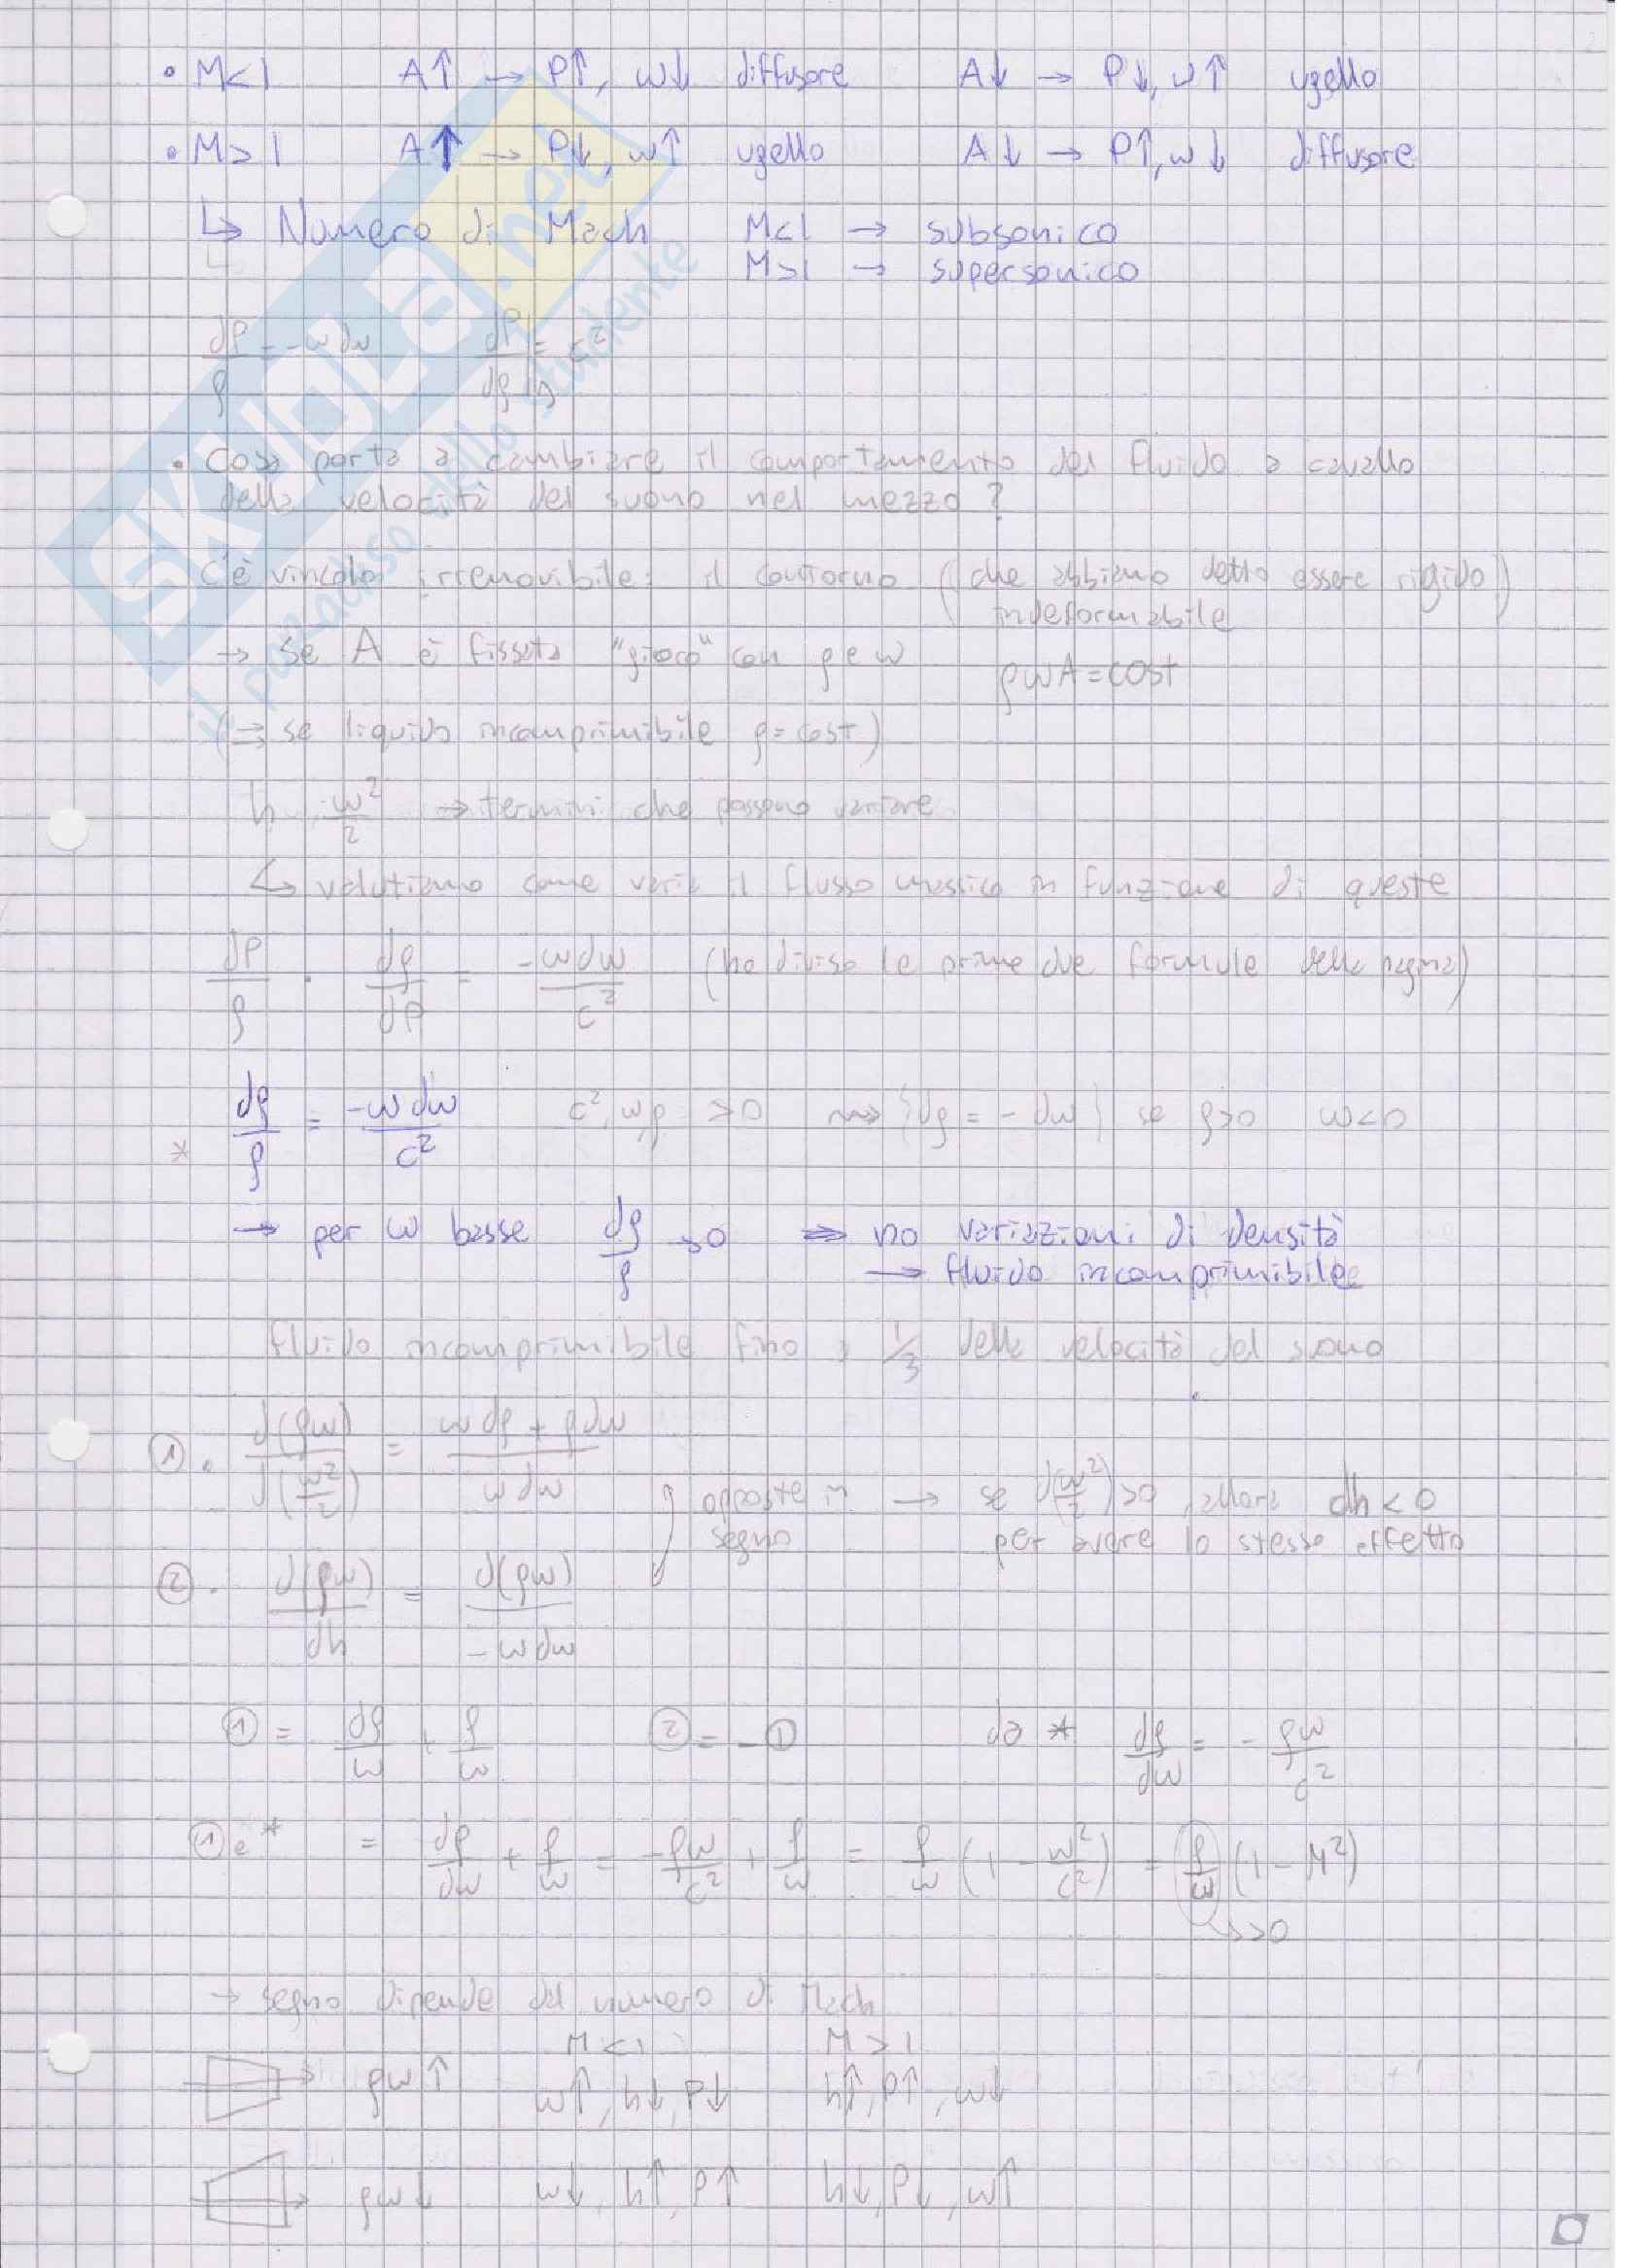 • M<1 A↑ → P↑, w↓ diffusore A↓ → P↓, w↑ ugello
• M>1 A↑ → P↓, w↑ ugello A↓ → P↑, w↓ diffusore
↳ Numero di Mach M<1 → subsonico
M>1 → supersonico
dP/ρ = -w dw dP/dρ|s = c²
• Cosa porta a cambiare il comportamento del fluido a cavallo
della velocità del suono nel mezzo?
C'è vincolo irremovibile: il contorno (che abbiamo detto essere rigido)
indeformabile
→ se A è fissata "gioco" con ρ e w ρwA = cost
(→ se liquido incomprimibile ρ = cost)
h, w²/2 → termini che possono variare
↳ valutiamo come varia il flusso massico in funzione di queste
dP/ρ · dρ/dP = -w dw/c² (ho diviso le prime due formule della pagina)
* dρ/ρ = -w dw/c² c², w, ρ >0 ⇝ {dρ = - dw} se ρ>0 w<0
→ per w basse dρ/ρ → 0 ⇒ no variazioni di densità
→ fluido incomprimibile
fluido incomprimibile fino a 1/3 della velocità del suono
① • d(ρw)/d(w²/2) = (w dρ + ρ dw)/(w dw)
opposte in segno → se d(w²/2)>0, allora dh<0
per avere lo stesso effetto
② • d(ρw)/dh = d(ρw)/(-w dw)
① = dρ/w + ρ/w ② = -① da * dρ/dw = - ρw/c²
① e * = dρ/dw + ρ/w = -ρw/c² + ρ/w = ρ/w (1 - w²/c²) = ρ/w (1 - M²)
↳ >0
→ segno dipende dal numero di Mach
M<1 M>1
ρw↑ w↑, h↓, P↓ h↑, P↑, w↓
ρw↓ w↓, h↑, P↑ h↓, P↓, w↑
SKUOLA.net
il paradiso dello studente